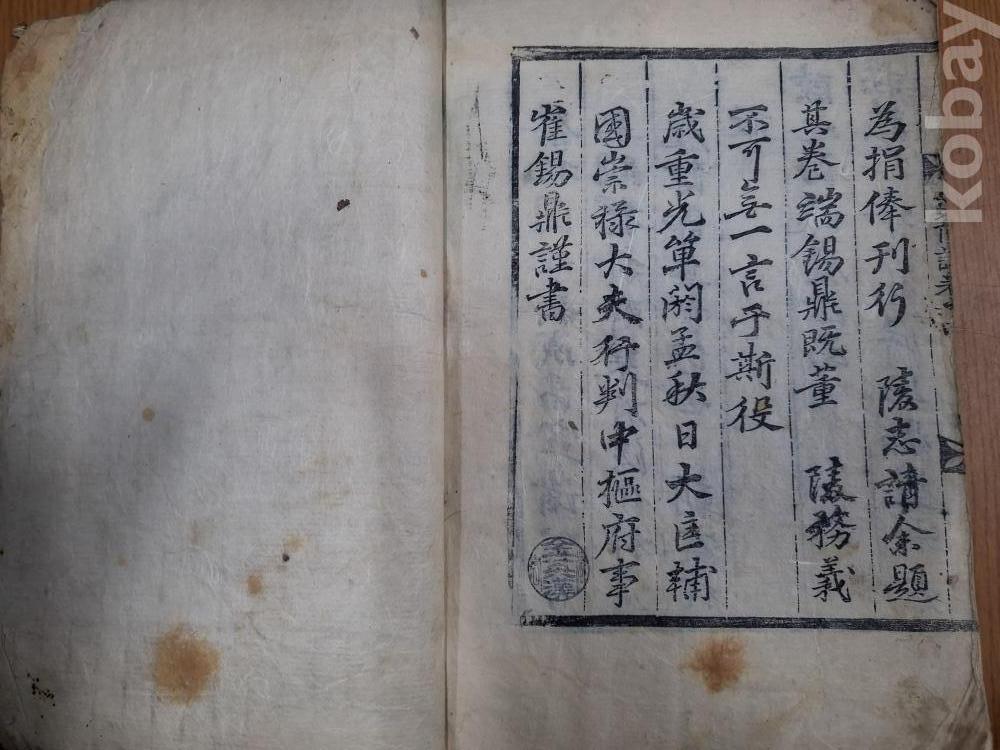 為捐俸刊行 陵志請余題
其卷端錫鼎既董 陵務義
不可無一言于斯役
歲重光單閼孟秋日大匡輔
國崇祿大夫行判中樞府事
崔錫鼎謹書
kobay